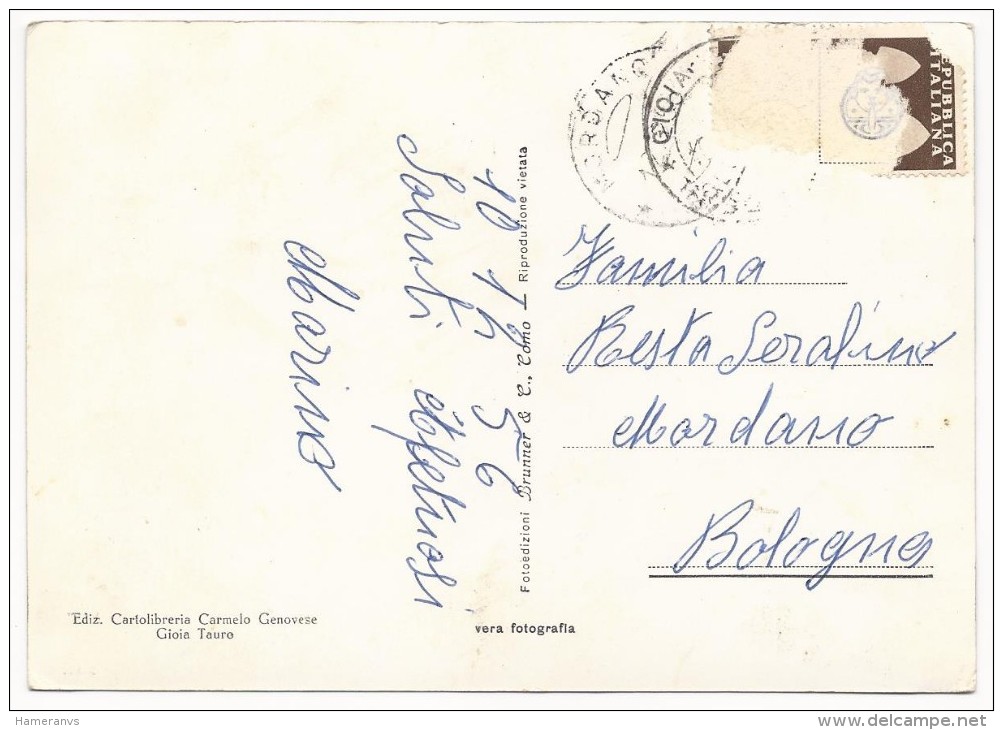 10 12 56
Saluti Affetuosi
Marino
Fotoedizioni Brunner & C., Como — Riproduzione vietata
Ediz. Cartolibreria Carmelo Genovese
Gioia Tauro
vera fotografia
REPUBBLICA
ITALIANA
MORDANO
GIOIA
Familia
Resta Serafino
Mordano
Bologna
Hameranvs
delcampe.net